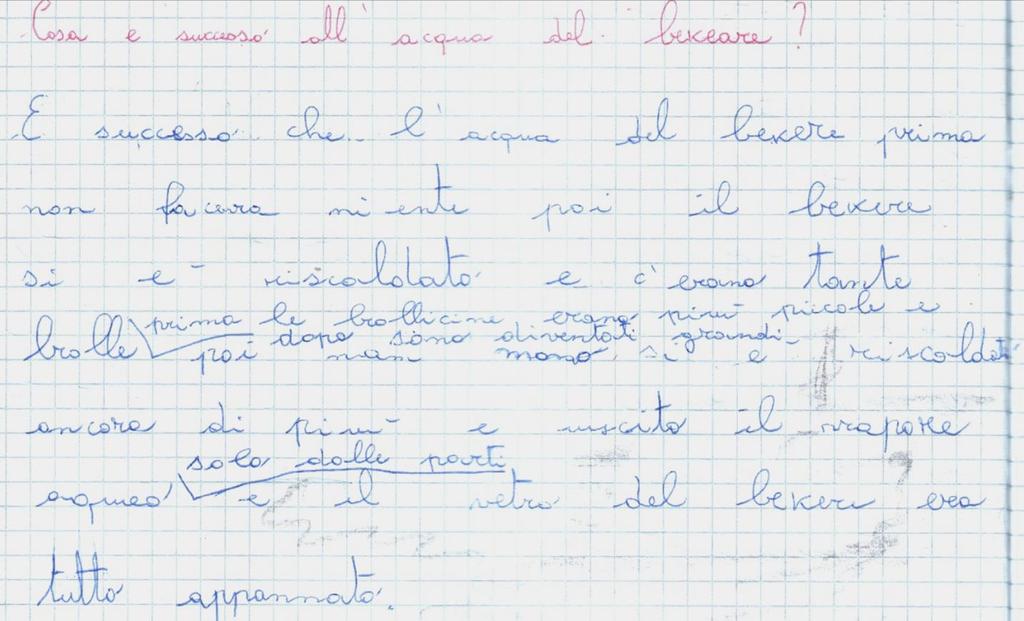 Cosa e successo all'acqua del bekeare?
E successo che l'acqua del bekere prima
non faceva niente poi il bekere
si e riscaldato e c'erano tante
prima le bollicine erano più piccole e
dopo sono diventati grandi
bolle poi man mano si e riscaldato
ancora di più e uscito il vapore
solo dalle parti
aqueo e il vetro del bekere era
tutto appannato.